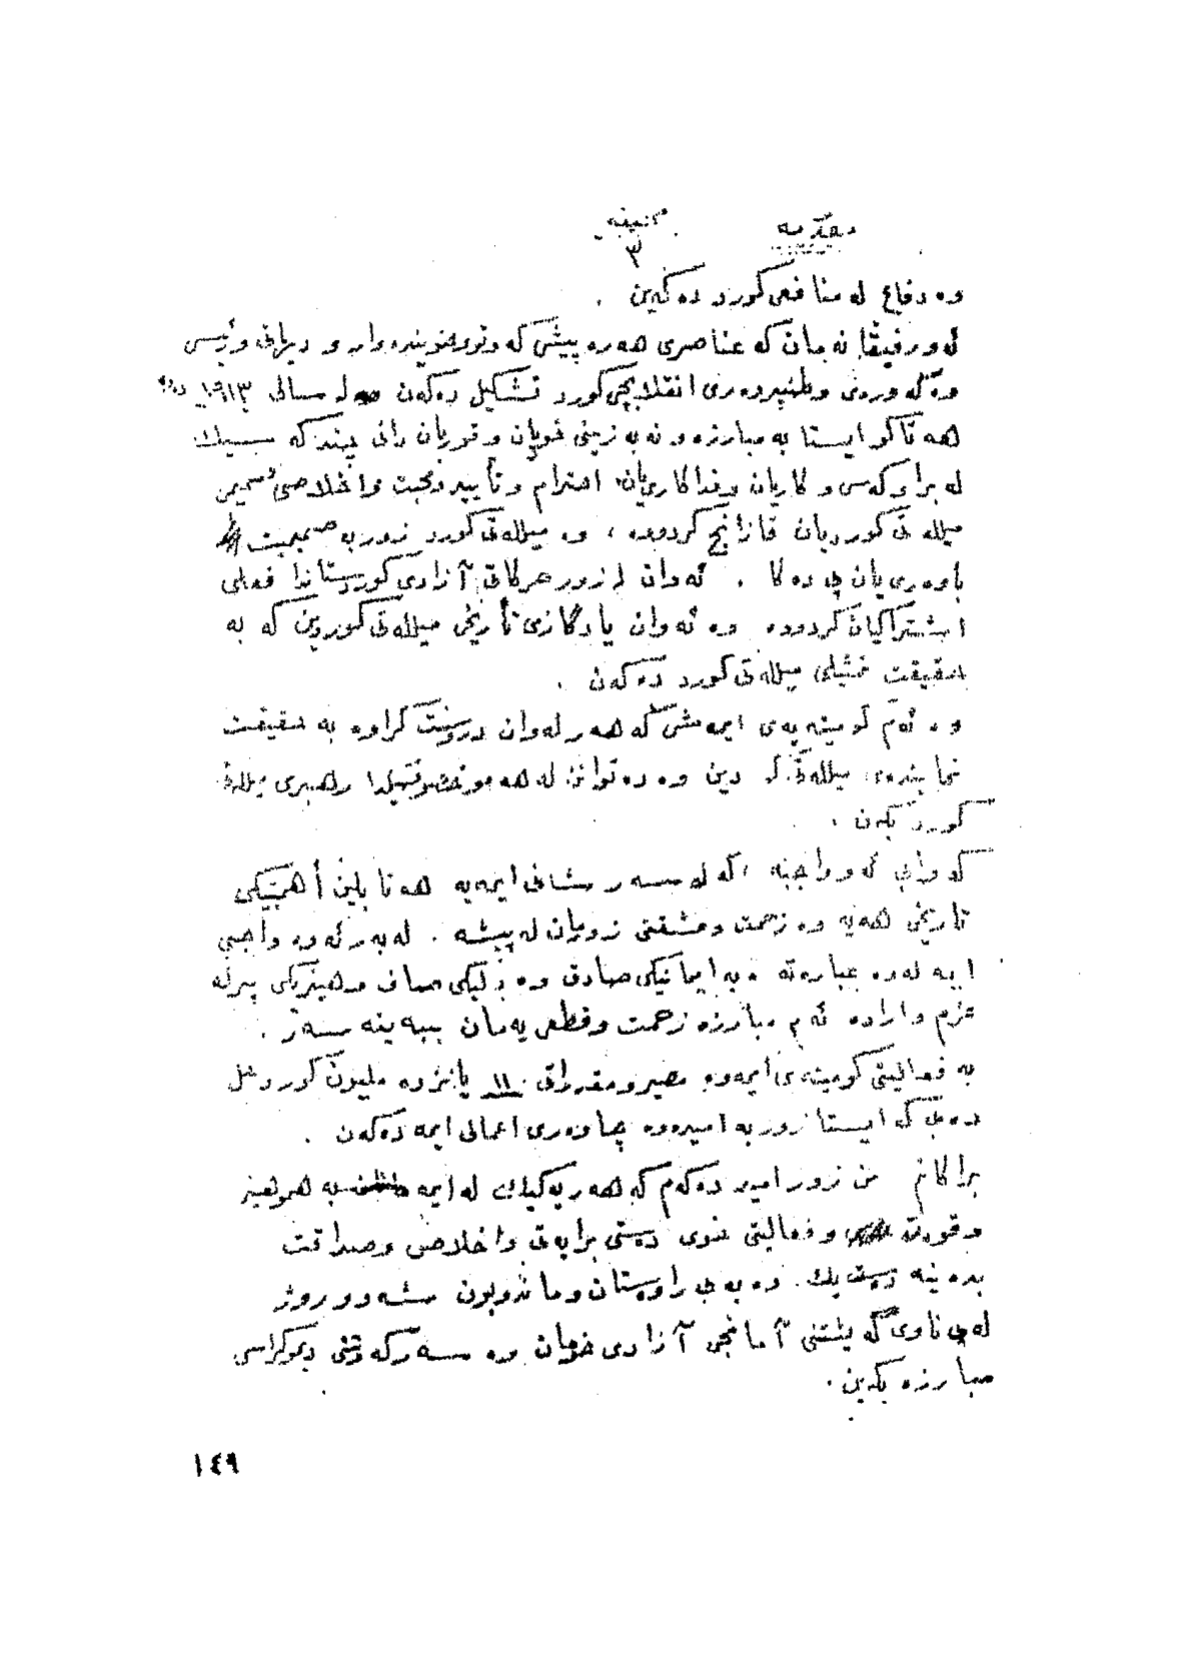 مقدمه صحیفه
٣
وه دفاع له منافعی کورد ده کەین .
ئه و رفیقانه مان که عناصری هه ره پیشی که وتو و
وه گه وره ی وطنپروه ری انقلابچی کورد تشکیل ده کەن له سالی ١٩١٣
هه تاکو ایستا به مبارزه و نه به زینی خویان و قوربان دانی چند که سیك
له برا و که س و کاریان و فداکاریان احترام و تأیید و محبت و اخلاصی صمیمی
میلله تی کوردیان قازانج کردووه ، وه میلله تی کورد زور به صمیمیت
باوه ری یان پی ده کا . ئه وان له زور حرکاتی آزادی کوردستاندا فعلی
اشتراکیان کردووه وه ئه وان یادگاری تأریخی میلله تی کوردین که به
حقیقت تمثیلی میلله تی کورد ده کەن .
وه ئه م کومیته یه ی ایمه ش که هه ر له وان دروست کراوه به حقیقت
نماینده ی میلله تی کوردین وه ده توانن له هه مو رهبری میللتی
کورد بکەن .
که وابی ئه و واجبه که له سه ر شانی ایمه یه هه تا بلین أهمیتیکی
تاریخی هه یه وه زحمت و مشقتی زورمان له پیشه . له به ر ئه وه واجبی
ایمه له وه عباره ته به ایمانیکی صادق وه دلیکی صاف و هیزیکی پر له
عزم و اراده ئه م مبارزه زحمت و قطعی یه مان ببه ینه سه ر .
به فعالیتی کومیته ی ایمه وه مصیر و مقدراتی ١١ یانزه ملیون کورد حل
ده بی که ایستا زور به امیده وه چاوه ری اعمالی ایمه ده کەن .
براکانم من زور امید ده کەم که هه ر یه کیك له ایمه به هه مو هیز
و قوت و فعالیتی ده ستی برایه تی و اخلاص و صداقت
بده ینه ده ست یك . وه به بی راوستان و ماندوبون شه و و روژ
له پی ناوی گه یشتنی آمانجی آزادی خومان وه سه رکه وتنی دیموکراسی
مبارزه بکەین .
١٤٩